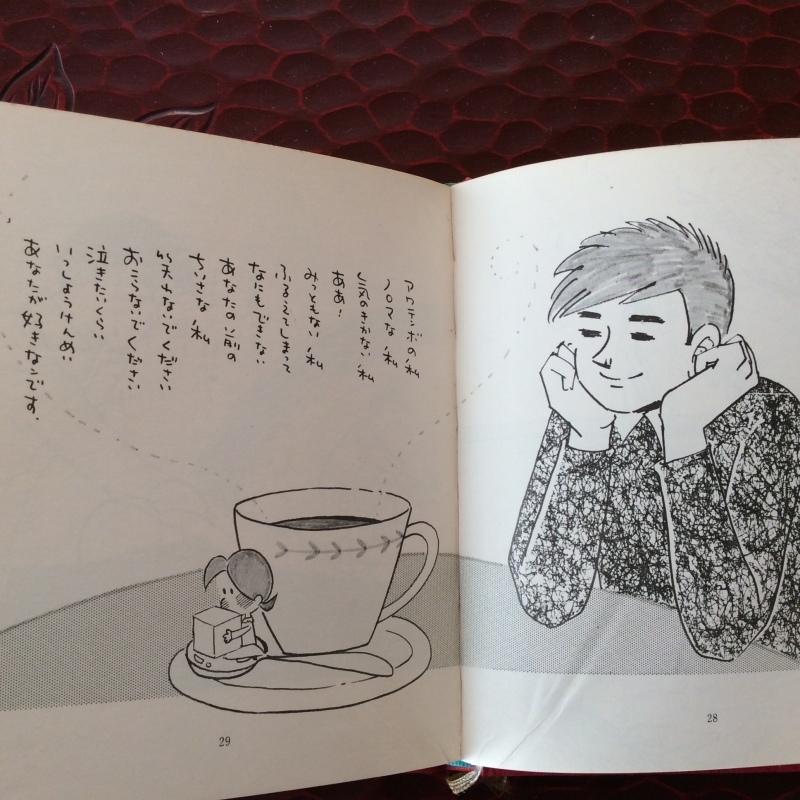 アワテンボの私
ノロマな私
気のきかない私
ああ!
みっともない私
ふるえてしまって
なにもできない
あなたの前の
ちいさな私
笑わないでください
おこらないでください
泣きたいくらい
いっしょうけんめい
あなたが好きなンです.
29
28